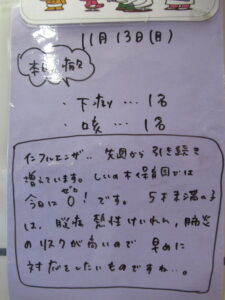 11月13日(月)
本日の病気
・下痢…1名
・咳…1名
インフルエンザ‥ 先週から引き続き
増えています。しいの木保育園では
今日は0!です。 5才未満の子
ゼロ
は、脳症 熱性けいれん、肺炎
のリスクが高いので 早めに
対応をしたいものですね…。